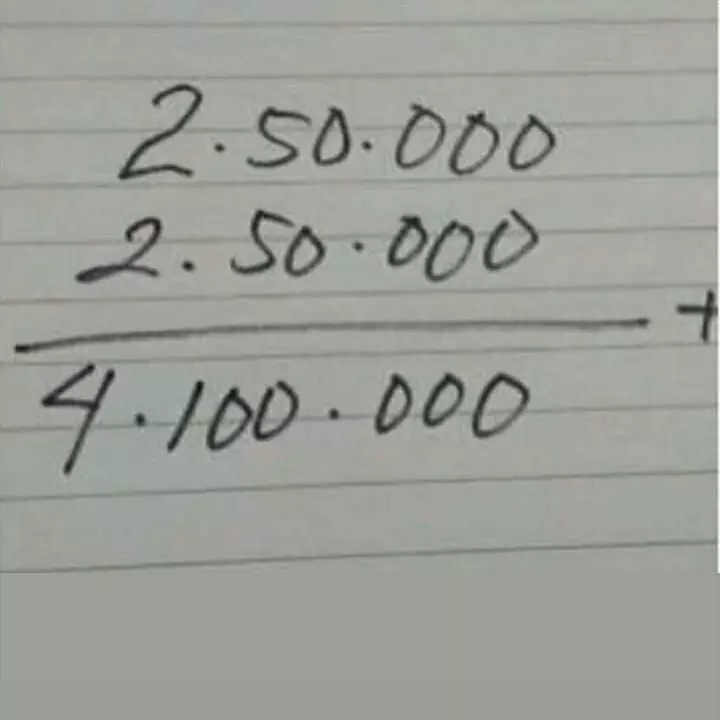 2.50.000
2.50.000
+
4.100.000